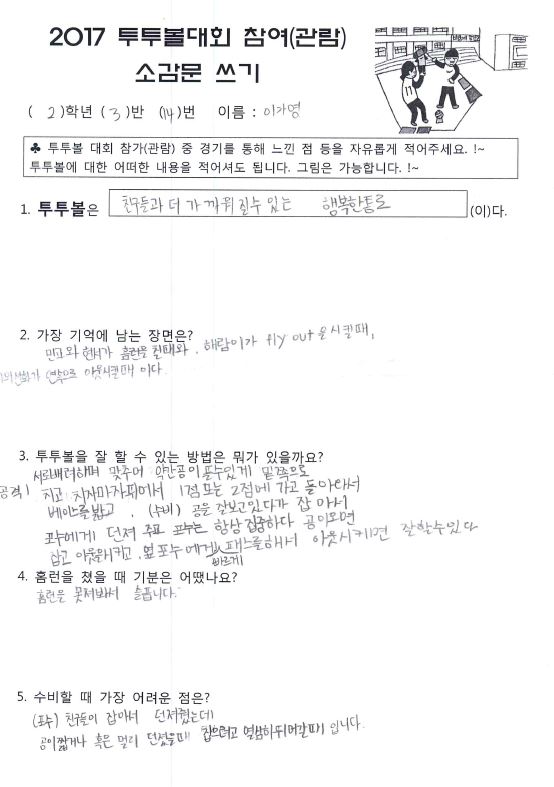 2017 투투볼대회 참여(관람)
소감문 쓰기
( 2 )학년 ( 3 )반 (14)번 이름 : 이가영
♣ 투투볼 대회 참가(관람) 중 경기를 통해 느낀 점 등을 자유롭게 적어주세요. !~
투투볼에 대한 어떠한 내용을 적어셔도 됩니다. 그림은 가능합니다. !~
1. 투투볼은 친구들과 더 가까워 질수 있는 행복한통로 (이)다.
2. 가장 기억에 남는 장면은?
민교와 현서가 홈런을 칠때와, 해람이가 fly out을시킬때,
연속으로 아웃시킬때 이다.
3. 투투볼을 잘 할 수 있는 방법은 뭐가 있을까요?
서로배려하며 맞추어 약만공이 뜰수있게 밑쪽으로
공격! 치고 치자마자뛰어서 1점 또는 2점에 가고 돌아와서
베이스를밟고, (수비) 공을 잘보고있다가 잡아서
포수에게 던져 주고 포수는 항상집중하다 공이오면
잡고 아웃시키고, 옆포수에게 빠르게 패스를해서 아웃시키면 잘할수있다
4. 홈런을 쳤을 때 기분은 어땠나요?
홈런을 못쳐봐서 슬픕니다.
5. 수비할 때 가장 어려운 점은?
(포수) 친구들이 잡아서 던져줬는데
공이짧거나 혹은 멀리 던졌을때 잡으려고 열심히뛰어갈때 입니다.